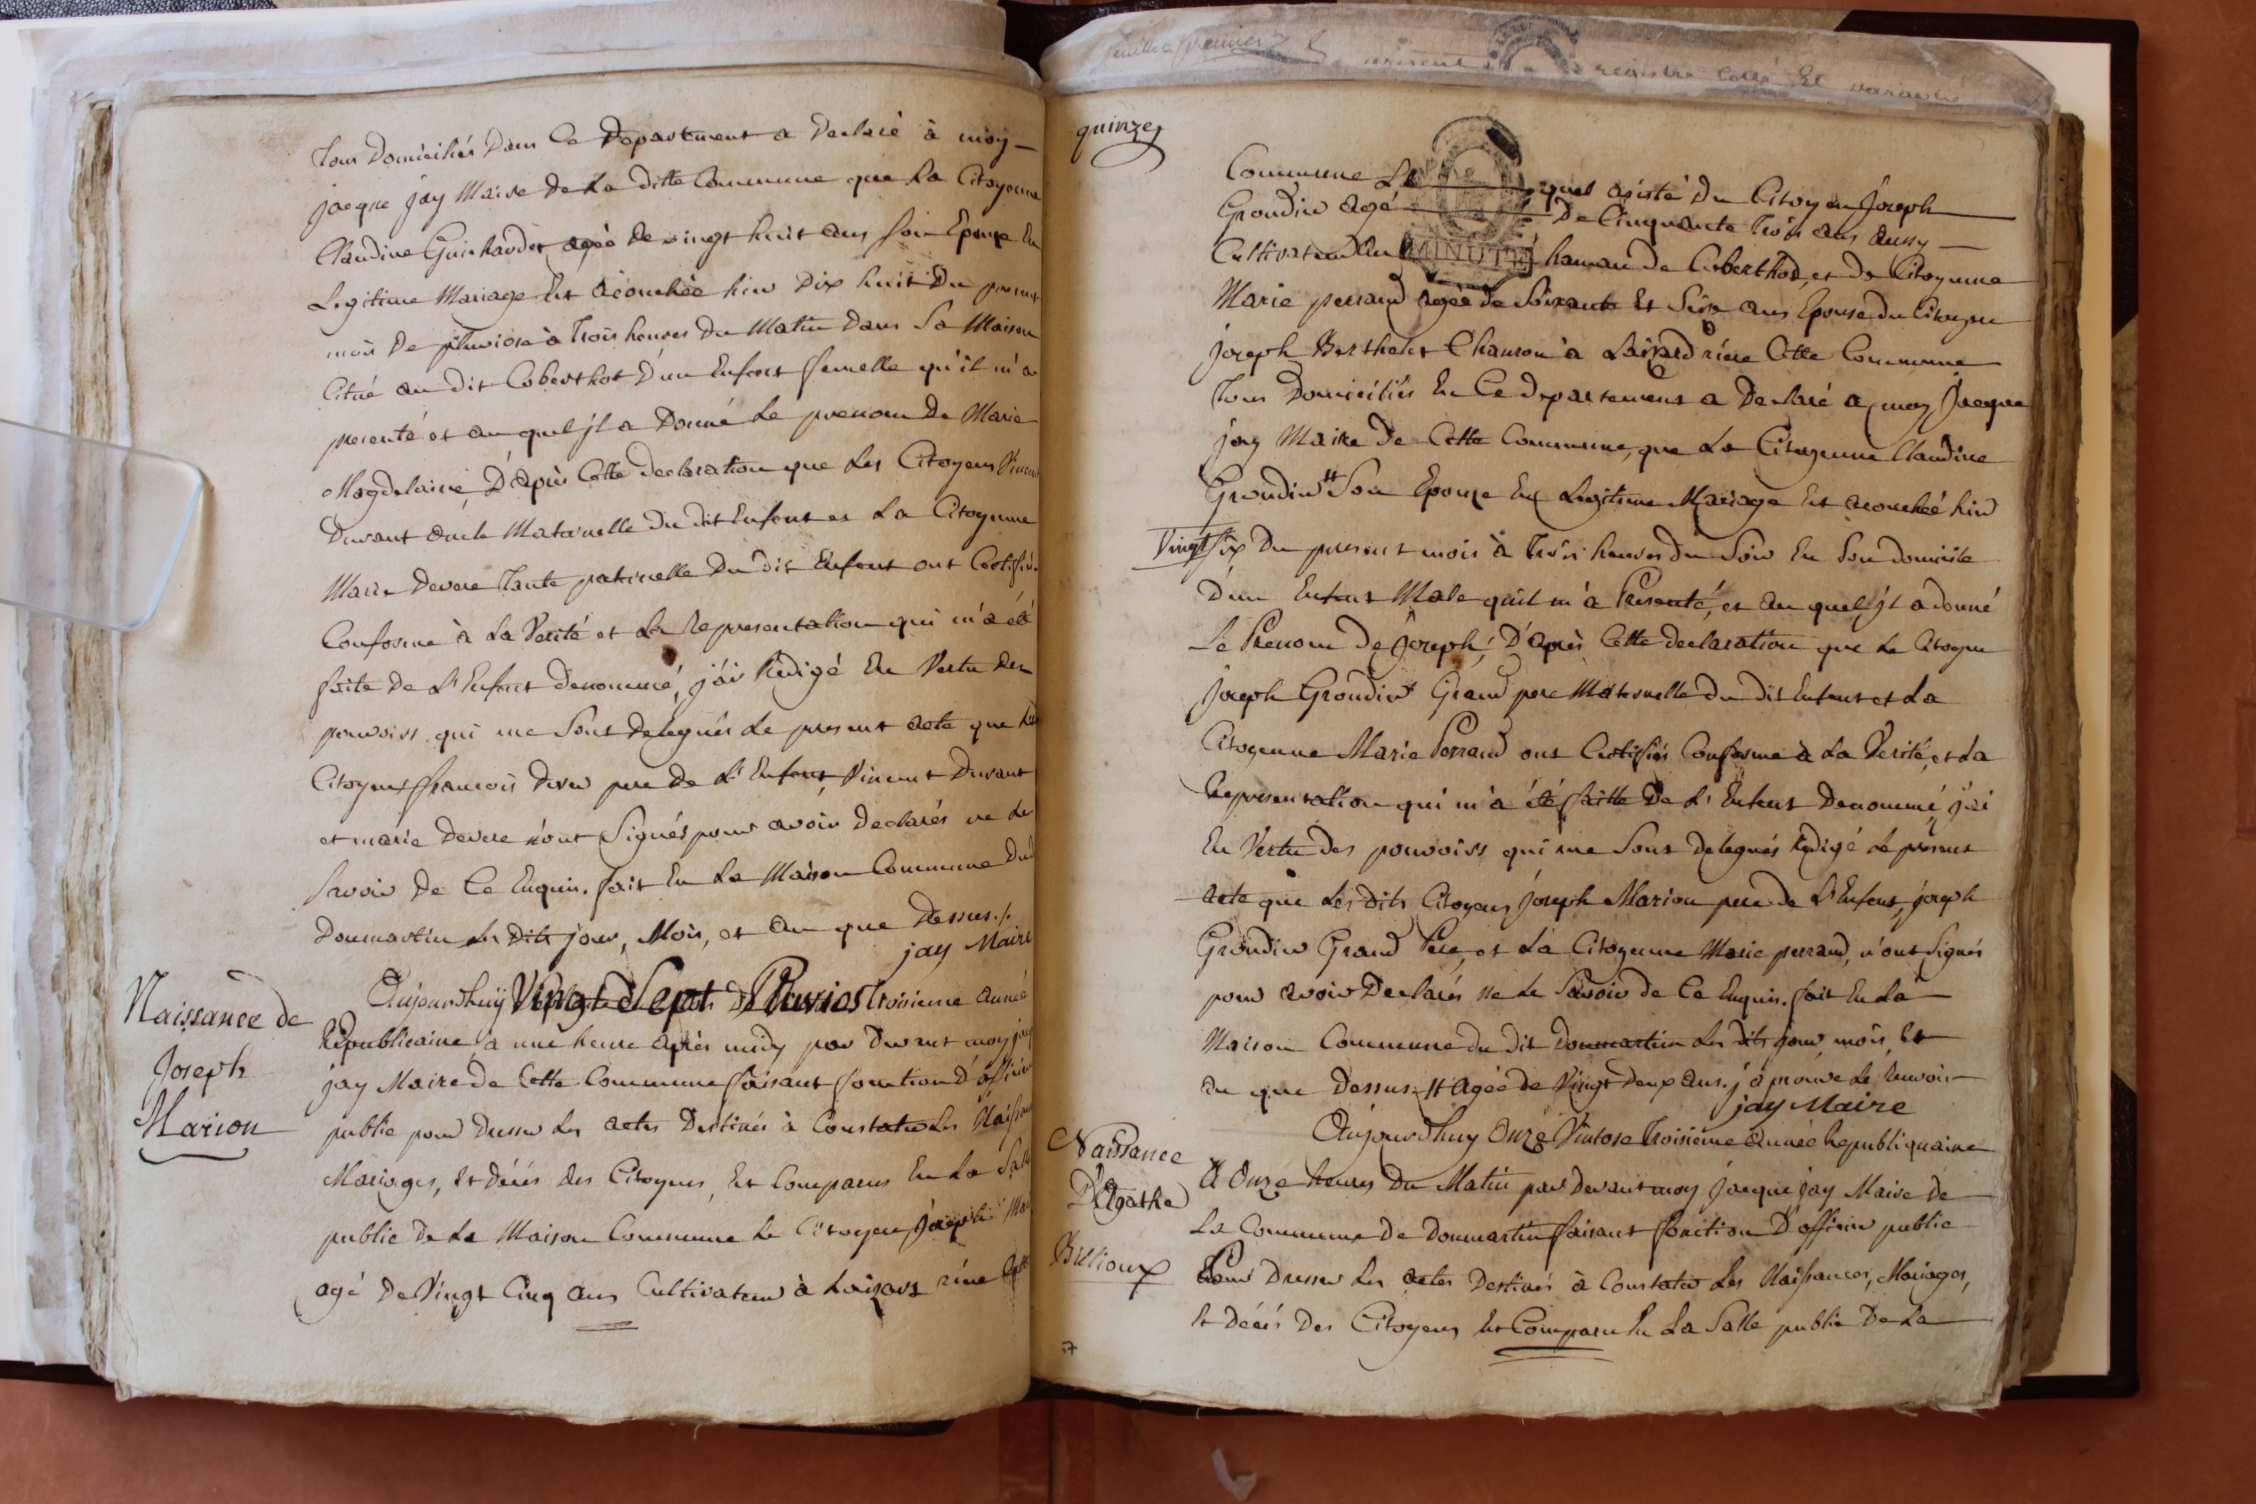 Tous Domiciliés Dans Ce Departement a Declaré à moy
jacque jay Maire de La ditte Commune que La Citoyenne
Claudine Guichardet agée de vingt huit ans son Epouse En
Legitime Mariage Est acouchée hier Dix huit Du present
mois De pluviose à Trois heures Du Matin Dans Sa Maison
Citué au dit Coberthot D'un Enfant femelle qu'il m'a
presenté et au quel jl a Donné Le prenom De Marie
Magdelaine, D'apres Cette declaration que Les Citoyens Vincent
Durant oncle Maternelle Du dit Enfant et La Citoyenne
Marie Devere Tante paternelle Du dit Enfant ont Certifié
Conforme à La Verité et La Representation qui m'a été
faite de L'Enfant denommé, j'ai Redigé En Vertu des
pouvoirs qui me Sont delegués Le present acte que Les
Citoyens francois Dever pere de L'Enfant, Vincent Durant
et marie Devere n'ont Signés pour avoir Declarés ne Le
Savoir De Ce Enquis. fait En La Maison Commune Du
Dommartin Les Dits jour, Mois, et an que Dessus./.
jay Maire
Naissance de
Joseph
Marion
Aujourdhuy Vingt Sept Pluvios Troisieme année
Republicaine à une heure après midy par Devant moy
jay Maire de Cette Commune faisant fonction D'officier
public pour Dresser Les actes Destinés à Constater Les
Mariages, Et décés des Citoyens, Est Comparus En La Salle
public De La Maison Commune Le Citoyen Joseph
agé De Vingt Cinq ans Cultivateur à Laisard riere
quinze
Commune Le quel asisté Du Citoyen Joseph
Grondin agé De Cinquante Trois ans aussy
Cultivateur au hamau De Coberthod, et De Citoyenne
Marie perraud agée de Soixante Et Six ans Epouse du Citoyen
Joseph Berthelet Chanson à Laisard riere Cette Commune
Tous Domiciliés En Ce departement a Declaré a moy Jacque
jay Maire De Cette Commune, que La Citoyenne Claudine
Grondin # Son Epouse En Legitime Mariage Est acouchée hier
Vingt six Du present mois à Trois heures du Soir En Son domicile
D'un Enfant Male quil m'a Presenté, et au quel jl a donné
Le Prenom De Joseph, D'après Cette declaration que Le Citoyen
Joseph Grondin Grand pere Maternelle du dit Enfant et La
Citoyenne Marie Perraud ont Certifiés Conforme à La Verité, et La
Representation qui m'a été faitte De L'Enfant Denommé, j'ai
En Vertu Des pouvoirs qui me Sont delegués Redigé Le present
acte que Les dits Citoyens Joseph Marion pere de L'Enfant, joseph
Grondin Grand Pere, et La Citoyenne Marie perraud, n'ont Signés
pour avoir Declarés ne Le Savoir de Ce Enquis. fait En La
Maison Commune du dit Dommartin Les dits jour, mois, Et
an que Dessus. # Agée de Vingt Deux ans. j'aprouve Le Renvoir
jay Maire
Naissance
D'Agathe
Billioux
Aujourdhuy Onze Vintose Troisieme année Republiquaine
A Onze heures Du Matin par devant moy Jacque jay Maire de
La Commune De Dommartin faisant fonction D'officier public
Pour Dresser Les actes Destinés à Constater Les Naissances, Mariages,
Et Décés Des Citoyens Est Comparu En La Salle public De La